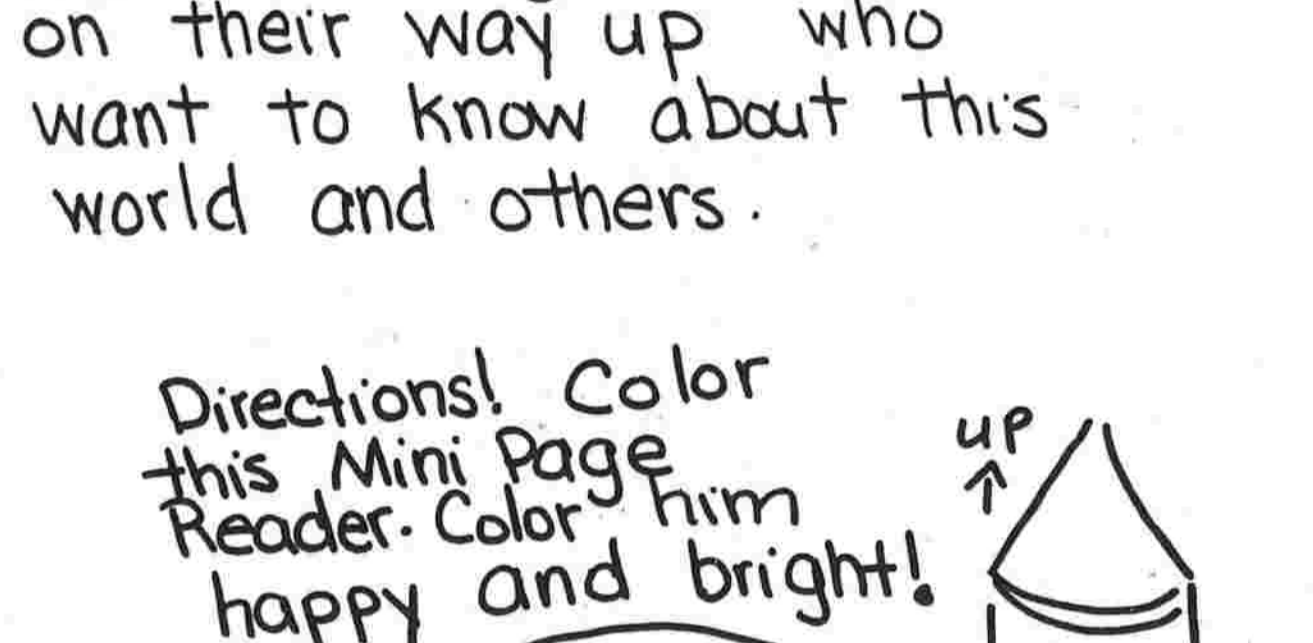 on their way up who
want to know about this
world and others.
Directions! Color
this Mini Page
Reader. Color him
happy and bright!
up